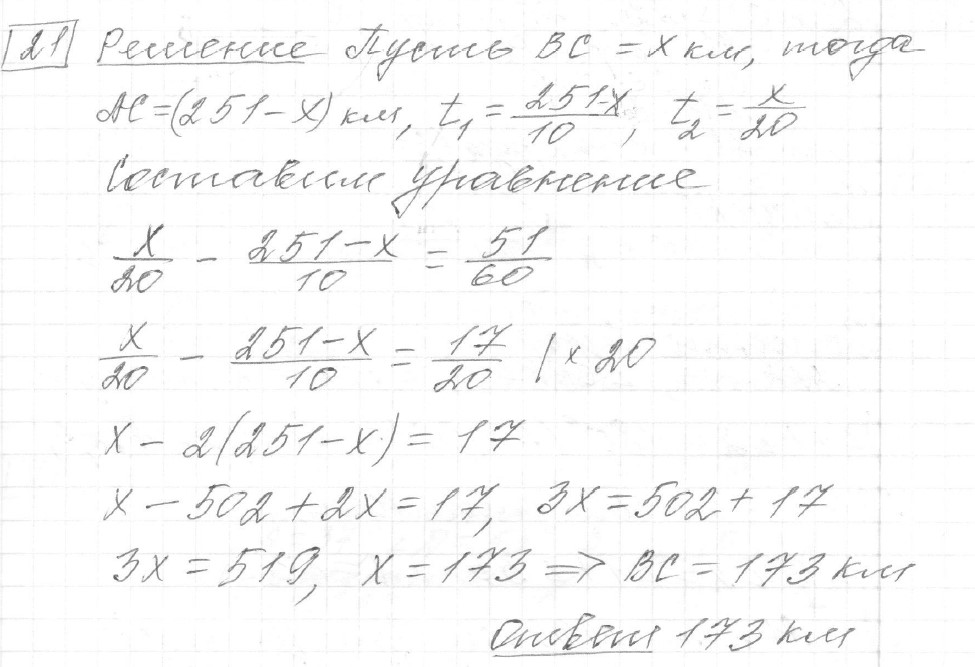 21 Решение Пусть BC = x км, тогда
AC=(251-x) км, t₁ = (251-x)/10, t₂ = x/20
Составим уравнение
x/20 - (251-x)/10 = 51/60
x/20 - (251-x)/10 = 17/20 | × 20
x - 2(251-x) = 17
x - 502 + 2x = 17, 3x = 502 + 17
3x = 519, x = 173 => BC = 173 км
Ответ 173 км